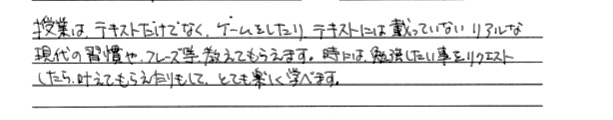 授業は、テキストだけでなく、ゲームをしたり、テキストには載っていないリアルな
現代の習慣や、フレーズ等、教えてもらえます。時には、勉強したい事をリクエスト
したら、叶えてもらえたりもして、とても楽しく学べます。